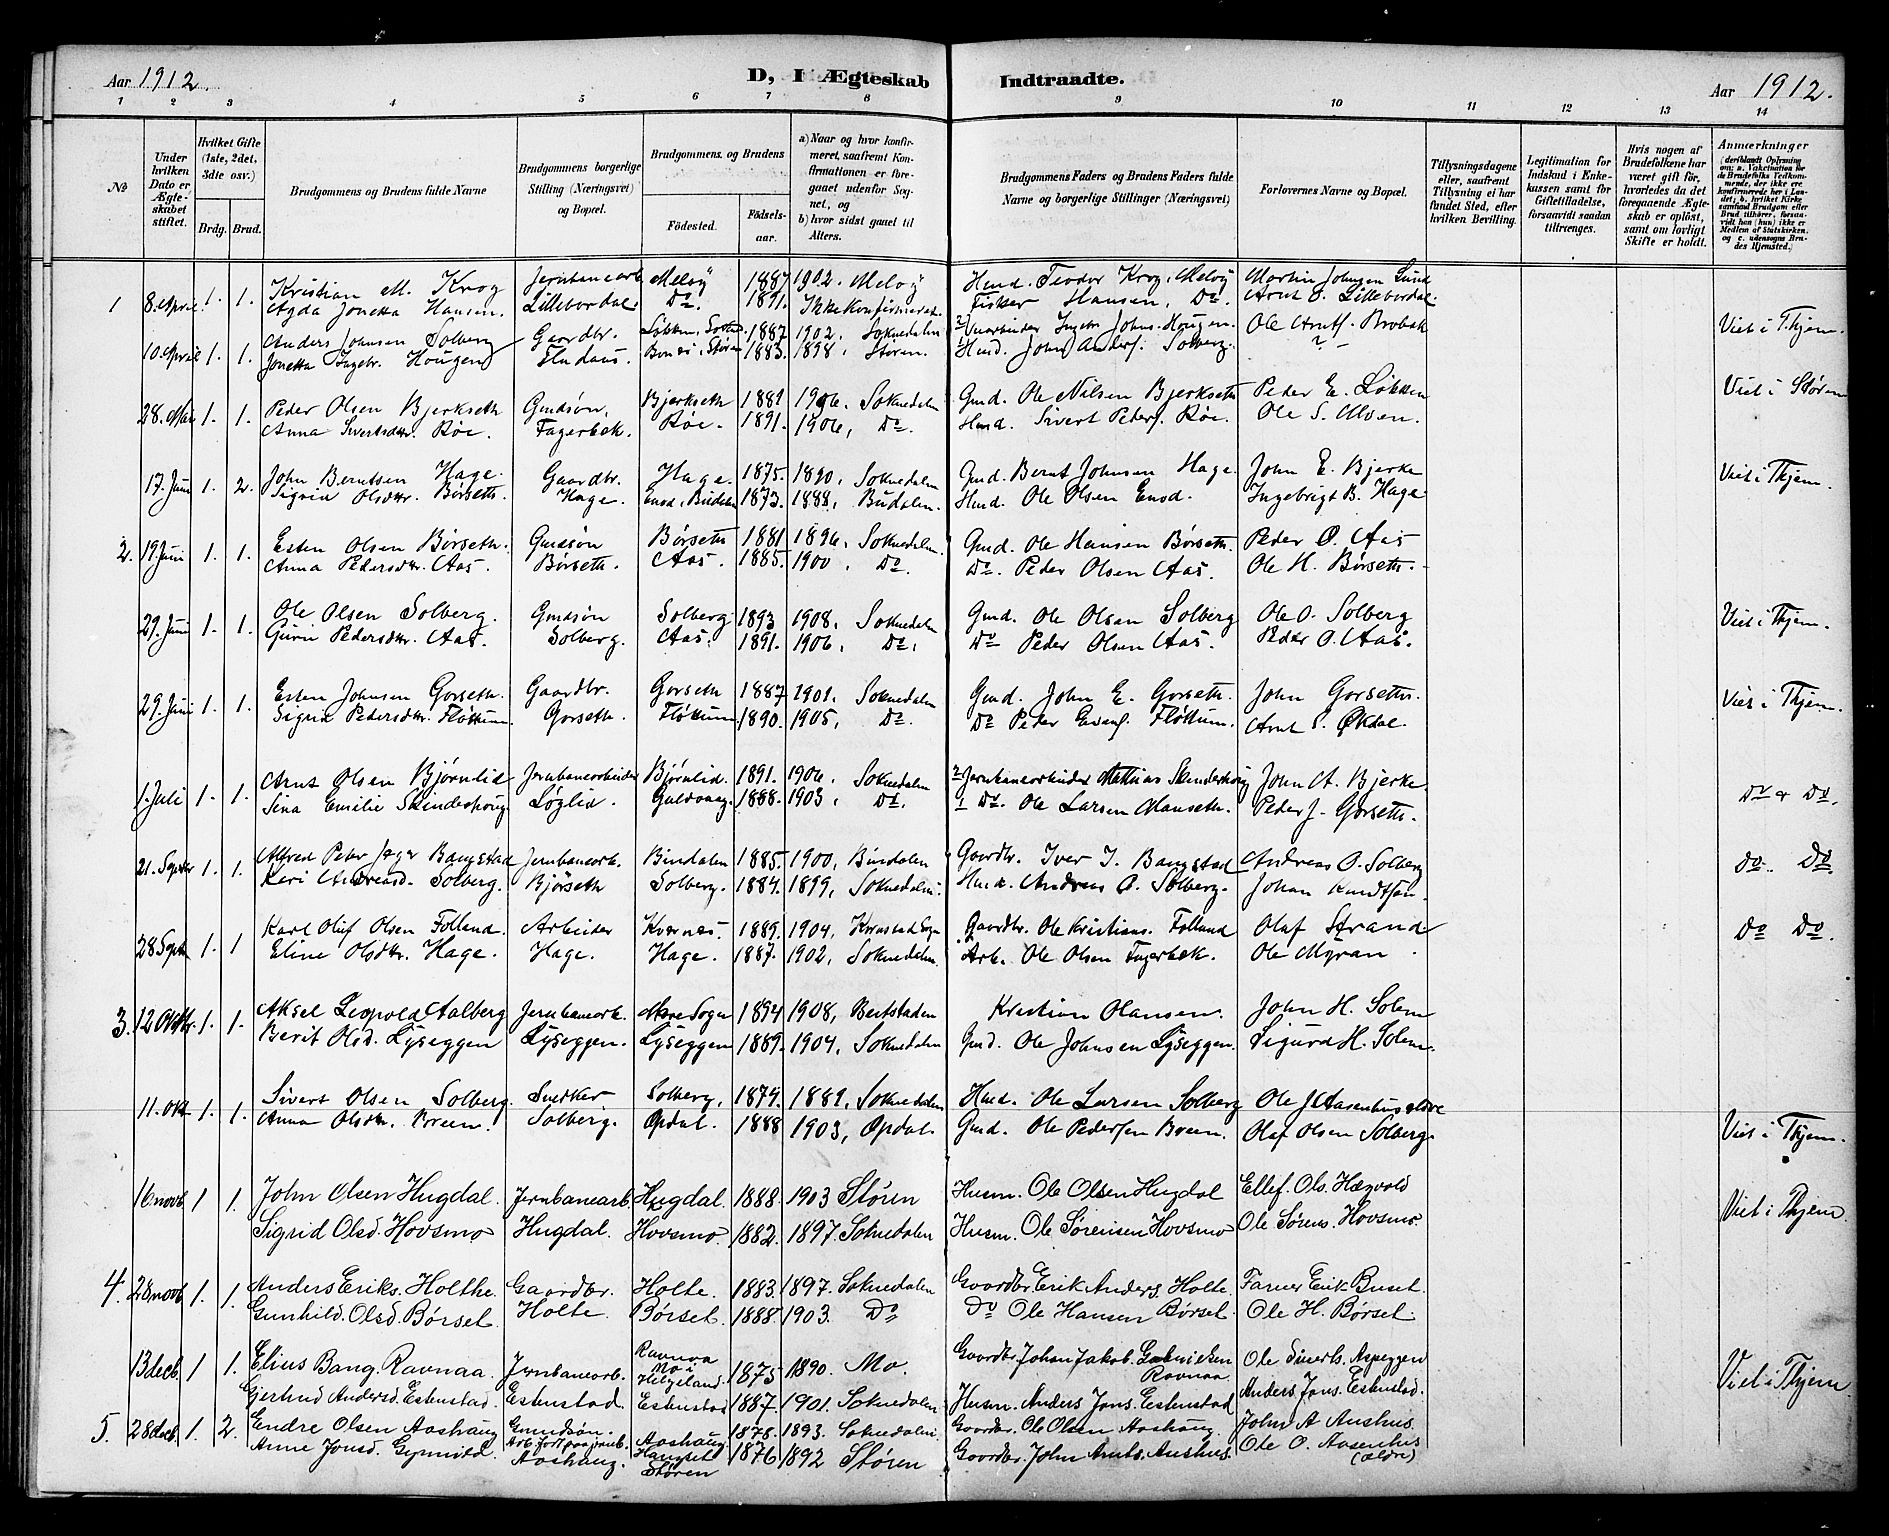 Aar 1912.
D, I Ægteskab Indtraadte.
Aar 1912.
1 2 3 4 5 6 7 8 9 10 11 12 13 14
No
Under hvilken Dato er Ægteskabet stiftet.
Hvilket Gifte (1ste, 2det, 3dte osv.)
Brdg. Brud.
Brudgommens og Brudens fulde Navne
Brudgommens borgerlige Stilling (Næringsvei) og Bopæl.
Brudgommens og Brudens
Fødested.
Fødselsaar.
a) Naar og hvor konfirmeret, saafremt Konfirmationen er foregaaet udenfor Sognet, og
b) hvor sidst gaaet til Alters.
Brudgommens Faders og Brudens Faders fulde Navne og borgerlige Stillinger (Næringsvei)
Forlovernes Navne og Bopæl.
Tillysningsdagene eller, saafremt Tillysning ei har fundet Sted, efter hvilken Bevilling.
Legitimation for Indskud i Enkekassen samt for Giftetilladelse, forsaavidt saadan tiltrænges.
Hvis nogen af Brudefolkene har været gift før, hvorledes da det foregaaende Ægteskab er opløst, samt om lovligt Skifte er holdt.
Anmærkninger
(deriblandt Oplysning om: a. Vakcination for de Brudefolks Vedkommende, der ikke ere konfirmerede her i Landet; b. hvilket Kirkesamfund Brudgom eller Brud tilhører, forsaavidt han (hun) ikke er Medlem af Statskirken. og c. udensogns Brudes Hjemsted.
1 8. April 1. 1. Kristian M. Krog Jernbanearb. Meløy 1887 1902. Meløy Husd. Teodor Krog, Meløy Martin Johnsen Lund
Agda Jonetta Hansen. Lillebordal Do 1891. Ikke konfirmeret. Fisker Hansen, Do. Arnt O. Lillebordal.
10. April 1. 1. Anders Johnsen Solberg Gaardbr. Løkken, Sokned. 1887 1902, Soknedalen 2 Ingebr. Johns. Hougen. Ole Arntf. Brobak Viet i Thjem.
Jonetta Ingebr. Hougen Støren 1883. 1898, Støren. 1 Husd. John Andersf. Solberg. ? -
28. Mai 1. 1. Peder Olsen Bjerkseth Gmdsøn, Bjerkseth 1881 1906. Soknedalen Gmd. Ole Nilsen Bjerkseth Peder E. Løkken Viet i Støren
Anna Sivertsdtr. Røe. Fagerbek. Røe. 1891. 1906, Do. Husd. Sivert Pedersf. Røe. Ole S. Moen.
17. Juni 1. 2. John Berntsen Hage. Gaardbr. Hage. 1875. 1890, Soknedalen Gmd. Bernt Johnsen Hage. John E. Bjerke Viet i Thjem.
Sigrid Olsdtr. Børseth. Hage. Ensd, Budalen 1873. 1888, Budalen. Husd. Ole Olsen Ensd. Ingebrigt B. Hage
2. 19. Juni 1. 1. Esten Olsen Børseth. Gmdsøn Børseth 1881 1896, Soknedalen. Gmd. Ole Hansen Børseth. Peder O. Aas
Anna Pedersdtr. Aas. Børseth. Aas. 1885. 1900. Do. Do. Peder Olsen Aas. Ole H. Børseth.
29. Juni 1. 1. Ole Olsen Solberg. Gmdsøn Solberg 1893 1908. Soknedalen Gmd. Ole Olsen Solberg Ole O. Solberg Viet i Thjem.
Guru Pedersdtr. Aas. Solberg. Aas. 1891. 1906, Do. Do Peder Olsen Aas. Peder O. Aas.
29. Juni 1. 1. Esten Johnsen Gorseth. Gaardbr. Gorseth 1887 1901. Soknedalen Gmd. John E. Gorseth. John Gorseth. Viet i Thjem.
Sigrid Pedersdtr. Fløttum. Gorseth. Fløttum 1890. 1905, Do. Do Peder Fløttum. Arnt S. Økdal.
1. Juli 1. 1. Arnt Olsen Bjørnlid Jernbanearbeider Bjørnlid. 1891. 1906. Soknedalen 2 Jernbanearbeider Mathias Skinderhoug John A. Bjerke Do & Do.
Sina Emilie Skinderhoug Løglid. 1888. 1903. Do. 1 Do. Ole Larsen Peder J. Gorseth.
21. Septbr 1. 1. Alfred Peter Bangstad Jernbanearb. Bindalen 1885. 1900, Bindalen Gaardbr. Iver J. Bangstad Andreas O. Solberg Do.. Do.
Kari Andreasd. Solberg. Bjørseth Solberg. 1884. 1899, Soknedalen. Husd. Andreas O. Solberg. Johan Knudtsen
28 Septbr 1. 1 Karl Oluf Olsen Folland. Arbeider Kvernes. 1889. 1904, Gaardbr. Ole Kristians. Folland Olaf Strand Do Do.
Eline Olsdtr. Hage. Hage. Hage. 1887. 1902, Soknedalen. Arb. Ole Olsen Fagerbek. Ole Myran
3. 12 Oktbr. 1. 1. Aksel Leopold Aalberg Jernbanearb. Mære Sogn 1894 1908, Beitstaden Kristian Olausen. John H. Solem
Berit Olsd. Lyseggen Lyseggen. Lyseggen 1889. 1904, Soknedalen Gmd. Ole Johnsen Lyseggen. Sigurd H. Solem.
11. Okt 1. 1. Sivert Olsen Solberg. Snedker Solberg. 1874. 1889. Soknedalen Husd. Ole Larsen Solberg Ole J. Aasenhus ældre Viet i Thjem.
Anna Olsdtr. Breen. Solberg. Opdal. 1888 1903, Opdal. Gmd. Ole Pedersen Breen. Olaf Olsen Solberg.
16 novb 1 1. John Olsen Hugdal. Jernbanearb. Hugdal. 1888 1903 Støren Husm. Ole Olsen Hugdal Ellef. Ols. Hægvold Viet i Thjem.
Sigrid Olsd. Hovsmo Hugdal. Hovsmo. 1882. 1897. Soknedalen Husm. Ole Sørensen Hovsmo Ole Sørens. Hovsmo.
4. 28 novb 1. 1. Anders Eriks. Holthe Gaardbr. Holte. 1883. 1897. Soknedalen Gaardbr. Erik Anders. Holte. Farver Erik Buset.
Gunhild. Olsd. Børset. Holte. Børset. 1888. 1903. Do Do Ole Hansen Børset. Ole H. Børset.
13 decb. 1 1. Elius Bang. Ravnaa. Jernbanearb. Ravnaa Mo i Helgeland. 1875 1890. Mo. Gaardbr. Johan Jakob. Gabrielsen Ravnaa. Ole Siverts. Aspeggen Viet i Thjem.
Gjertrud Andersd. Estenstad. Estenstad. Estenstad 1887 1901. Soknedalen Husm. Anders Jons. Estenstad Anders Jons. Estenstad.
5. 28 decb. 1. 2. Endre Olsen Aashaug Gmandsøn. Aashaug 1878. 1893. Soknedalen. Gaardbr. Ole Olsen Aashaug. John A Aushus
Anne Jonsd. Gynnild. Aashaug. Støren 1876 1892 Støren Gaardbr. John Arnts. Aushus. Ole O. Aasenhus (ældre)